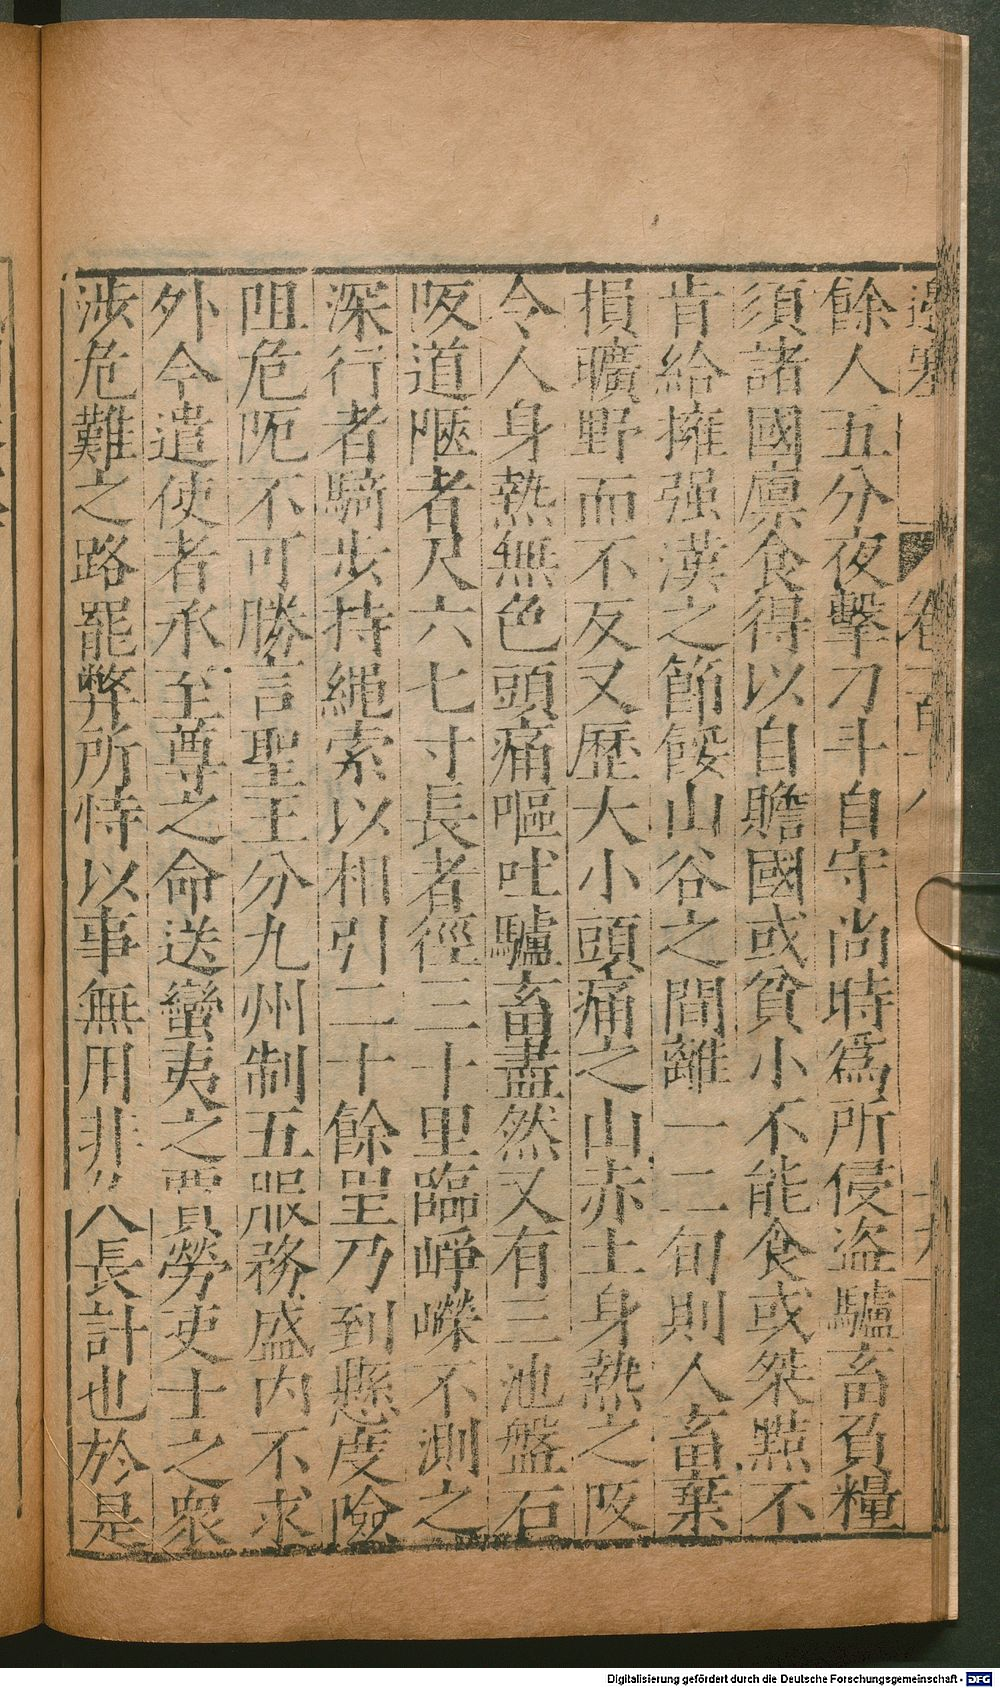 邊塞 卷一百十八 十九
餘人五分夜擊刀斗自守尚時爲所侵盜驢畜負糧
須諸國廪食得以自贍國或貧小不能食或桀黠不
肯給擁强漢之節餒山谷之間離一二旬則人畜棄
損曠野而不反又歷大小頭痛之山赤土身熱之阪
令人身熱無色頭痛嘔吐驢畜盡然又有三池盤石
阪道陿者尺六七寸長者徑三十里臨崢嶸不測之
深行者騎步持繩索以相引二十餘里乃到懸度險
阻危阨不可勝言聖王分九州制五服務盛内不求
外今遣使者承至尊之命送蠻夷之賈勞吏士之衆
涉危難之路罷弊所恃以事無用非久長計也於是
Digitalisierung gefördert durch die Deutsche Forschungsgemeinschaft - DFG